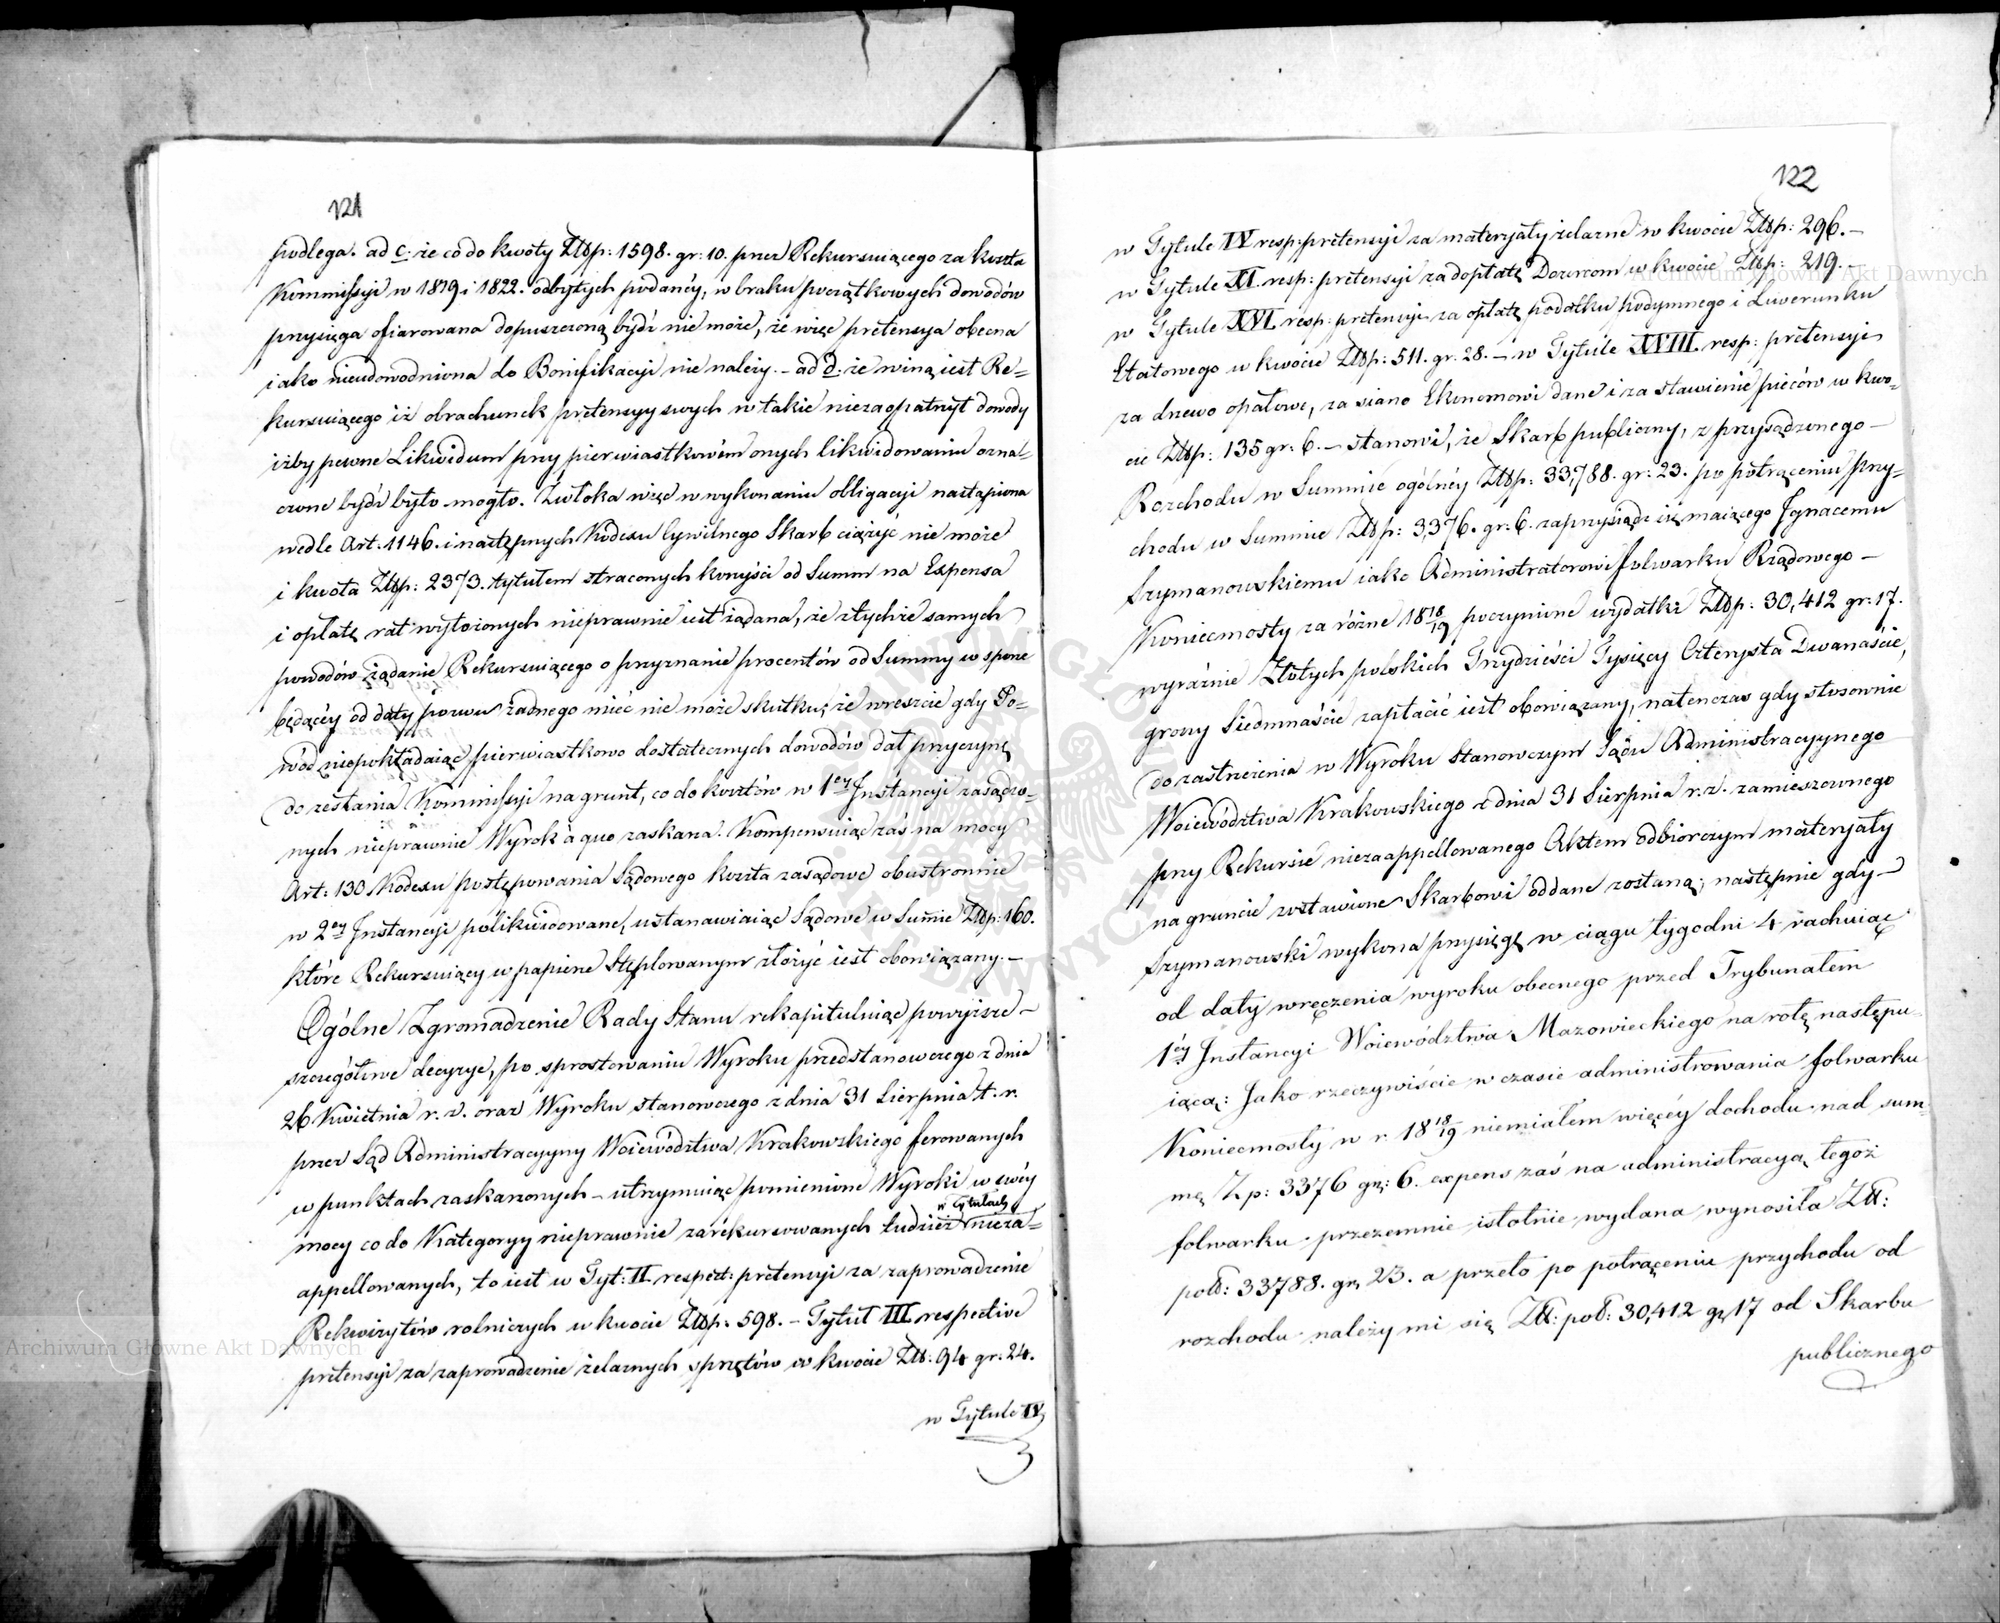 121
podlega. ad c. że co do kwoty Złtp: 1598. gr: 10. przez Rekursuiącego za koszta
Kommissyi w 1819 i 1822. odbytych podanéy, w braku początkowych dowodów
przysięga ofiarowana dopuszczoną bydź nie może, że więc pretensya obecna
iako nieudowodniona do Bonifikacyi nie należy. – ad d. że winą iest Re=
kursuiącego iż obrachunek pretensyy swych w takie niezaopatrzył dowody
iżby pewne Likwidum przy pierwiastkowém onych likwidowaniu ozna=
czone bydź było mogło. Zwłoka więc w wykonaniu obligacyi nastąpiona
wedle Art. 1146. i następnych Kodexu Cywilnego Skarb ciążyć nie może
i kwota Złtp: 2373. tytułem straconych korzyści od Summ na Expensa
i opłatę rat wyłożonych nieprawnie iest żądana, że z tychże samych
powodów żądanie Rekursuiącego o przyznanie procentów od Summy w sporze
będącéy od daty pozwu żadnego mieć nie może skutku; że wreszcie gdy Po=
wód niepokładaiąc pierwiastkowo dostatecznych dowodów dał przyczynę
do zesłania Kommissyi na grunt, co do kosztów w 1ey Instancyi zasądzo=
nych nieprawnie Wyrok à quo zaskarża. Kompensuiąc zaś na mocy
Art: 130 Kodexu postępowania Sądowego koszta zasądowe obustronnie
w 2ey Instancyi polikwidowane, ustanawiaiąc Sądowe w Sumie Złtp: 160.
które Rekursuiący w papierze Stęplowanym złożyć iest obowiązany. –
Ogólne Zgromadzenie Rady Stanu rekapituluiąc powyższe –
szczegółowe decyzye, po sprostowaniu Wyroku przedstanowczego z dnia
26 Kwietnia r. z. oraz Wyroku stanowczego z dnia 31 Sierpnia t. r.
przez Sąd Administracyyny Woiewództwa Krakowskiego ferowanych
w punktach zaskarżonych – utrzymuiąc pomienione Wyroki w swéy
w tytułach
mocy co do Kategoryy nieprawnie zarekursowanych tudzież nieza=
appellowanych, to iest w Tyt: II respect: pretensyi za zaprowadzenie
Rekwizytów rolniczych w kwocie Złtp: 598. – Tytuł III respective
pretensyi za zaprowadzenie żelaznych sprzętów w kwocie Złt: 94 gr: 24.
w Tytule IV
122
w Tytule IV resp: pretensyi za materyały żelazne w kwocie Złtp: 296. –
w Tytule XI. resp: pretensyi za dopłatę Dozorcom w kwocie Złtp: 219. –
w Tytule XVI. resp: pretensyi za opłatę podatku podymnego i Liwerunku
Etatowego w kwocie Złtp: 511. gr: 28. – w Tytule XVIII. resp: pretensyi
za drzewo opałowe, za siano Ekonomowi dane i za stawienie pieców w kwo=
cie Złtp: 135 gr: 6. – stanowi, że Skarb publiczny, z przysądzonego –
Rozchodu w Summie ogólnéy Złtp: 33,788. gr: 23. po potrąceniu przy=
chodu w Summie Złtp: 3,376. gr: 6. zaprzysiądz się maiącego Ignacemu
Szymanowskiemu iako Administratorowi folwarku Rządowego –
Koniecmosty za różne 18 18/19 poczynione wydatki Złtp: 30,412 gr: 17.
wyraźnie Złotych polskich Trzydzieści Tysięcy Czterysta Dwanaście,
groszy Siedmnaście zapłacić iest obowiązany, natenczas gdy stosownie
do zastrzeżenia w Wyroku Stanowczym Sądu Administracyynego
Woiewództwa Krakowskiego z dnia 31 Sierpnia r. z. zamieszczonego
przy Rekursie niezaappellowanego Aktem odbiorczym materyały
na gruncie zostawione Skarbowi oddane zostaną; następnie gdy –
Szymanowski wykona przysięgę w ciągu tygodni 4 rachuiąc
od daty wręczenia wyroku obecnego przed Trybunałem
1éy Instancyi Woiewództwa Mazowieckiego na rotę następu=
iącą: Jako rzeczywiście w czasie administrowania folwarku
Koniecmosty w r. 18 18/19 niemiałem więcéy dochodu nad sum=
mę Zp: 3376 gr: 6. expens zaś na administracyą tegoż
folwarku przezemnie istotnie wydana wynosiła Złt:
pol: 33788. gr. 23. a przeto po potrąceniu przychodu od
rozchodu należy mi się Złt: pol: 30,412 gr 17 od Skarbu
publicznego
Archiwum Główne Akt Dawnych
Archiwum Główne Akt Dawnych
ARCHIWUM GŁÓWNE AKT DAWNYCH